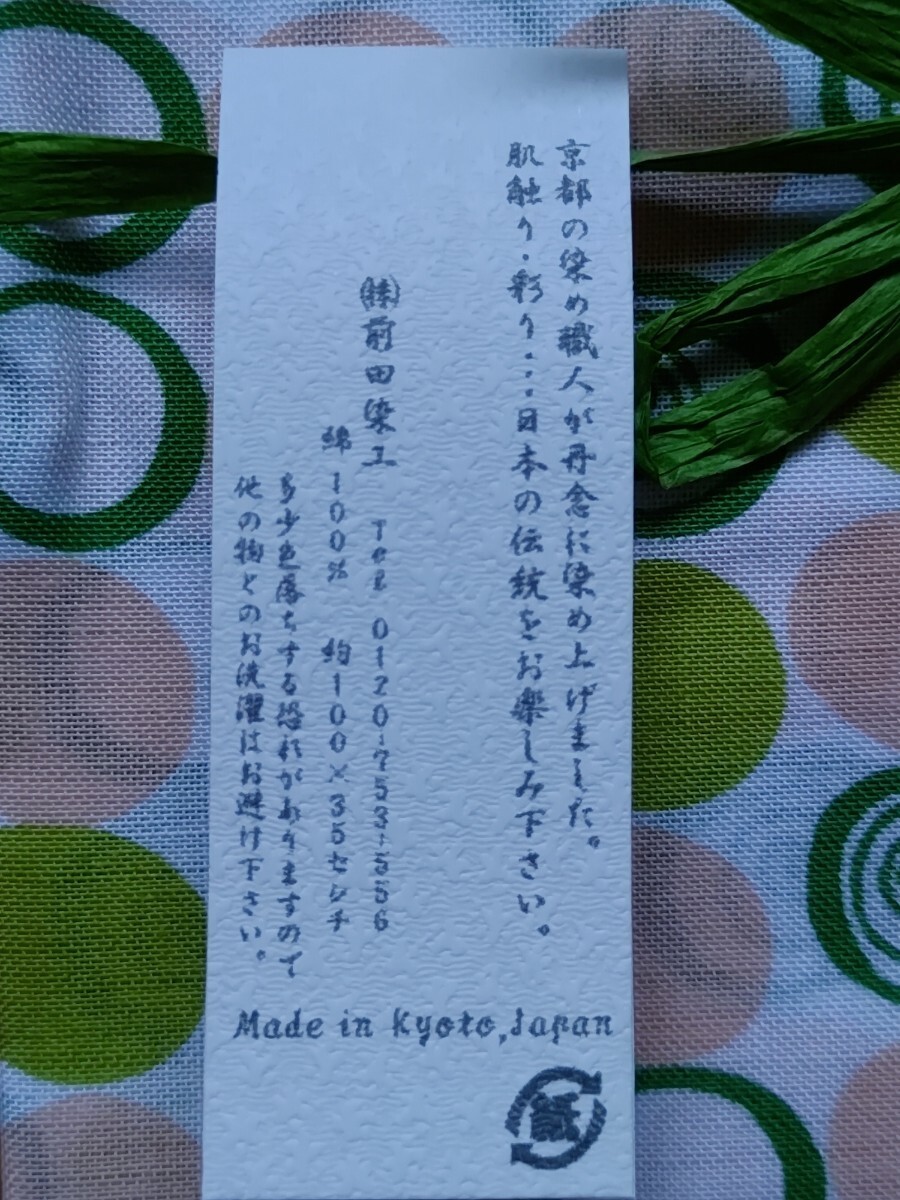 京都の染め職人が丹念に染め上げました。
肌触り・彩り・・・日本の伝統をお楽しみ下さい。
㈱前田染工 Tel 0120-753-556
綿100% 約100×35センチ
多少色落ちする恐れがありますので
他の物とのお洗濯はお避け下さい。
Made in Kyoto,Japan
紙